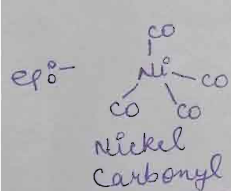 CO
eg:- Ni CO
CO CO
Nickel
Carbonyl